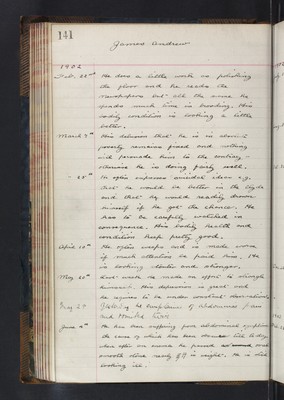 141
James Andrew
1902
Feb. 22nd He does a little work in polishing
the floor and he reads the
newspapers but all the same he
spends much time in brooding. His
bodily condition is looking a little
better.
March 7th His delusion that he is in absolute
poverty remains fixed and nothing
will persuade him to the contrary.
Otherwise he is doing fairly well.
" 25th He often expresses suicidal ideas e.g.
that he would be better in the Clyde
and that he would readily drown
himself if he got the chance. He
has to be carefully watched in
consequence. His bodily health and
condition keep pretty good.
April 12th He often weeps and is made worse
if much attention be paid him. He
is looking stouter and stronger.
May 20th
himself. His depression is great and
he requires to be under constant observation.
he complains of abdominal pain
June 4th He has been suffering from abdominal symptoms
the cause of which has been till today
when after an enema he passed
smooth stone nearly in weight. He is still
looking ill.